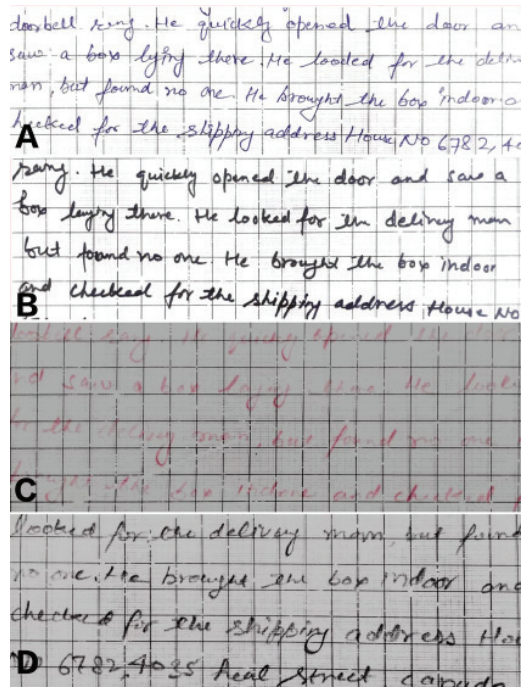 doorbell rang. He quickly opened the door an
saw a box lying there. He looded for the deliv
man, but found no one. He brought the box indoor a
A hecked for the shipping address House No 6782, 40
rang. He quickly opened the door and saw a
box laying there. He looked for the delivery man
but found no one. He brought the box indoor
B and checked for the shipping address House No
doorbell rang. He quickly opened the door
nd saw a box laying there He looke
for the delivery man, but found no one
C brought the box indore and checked f
looked for the delivery mam, but found
no one. He brought the box indoor and
checked for the shipping address Hou
D No 6782, 4035 heal street canada